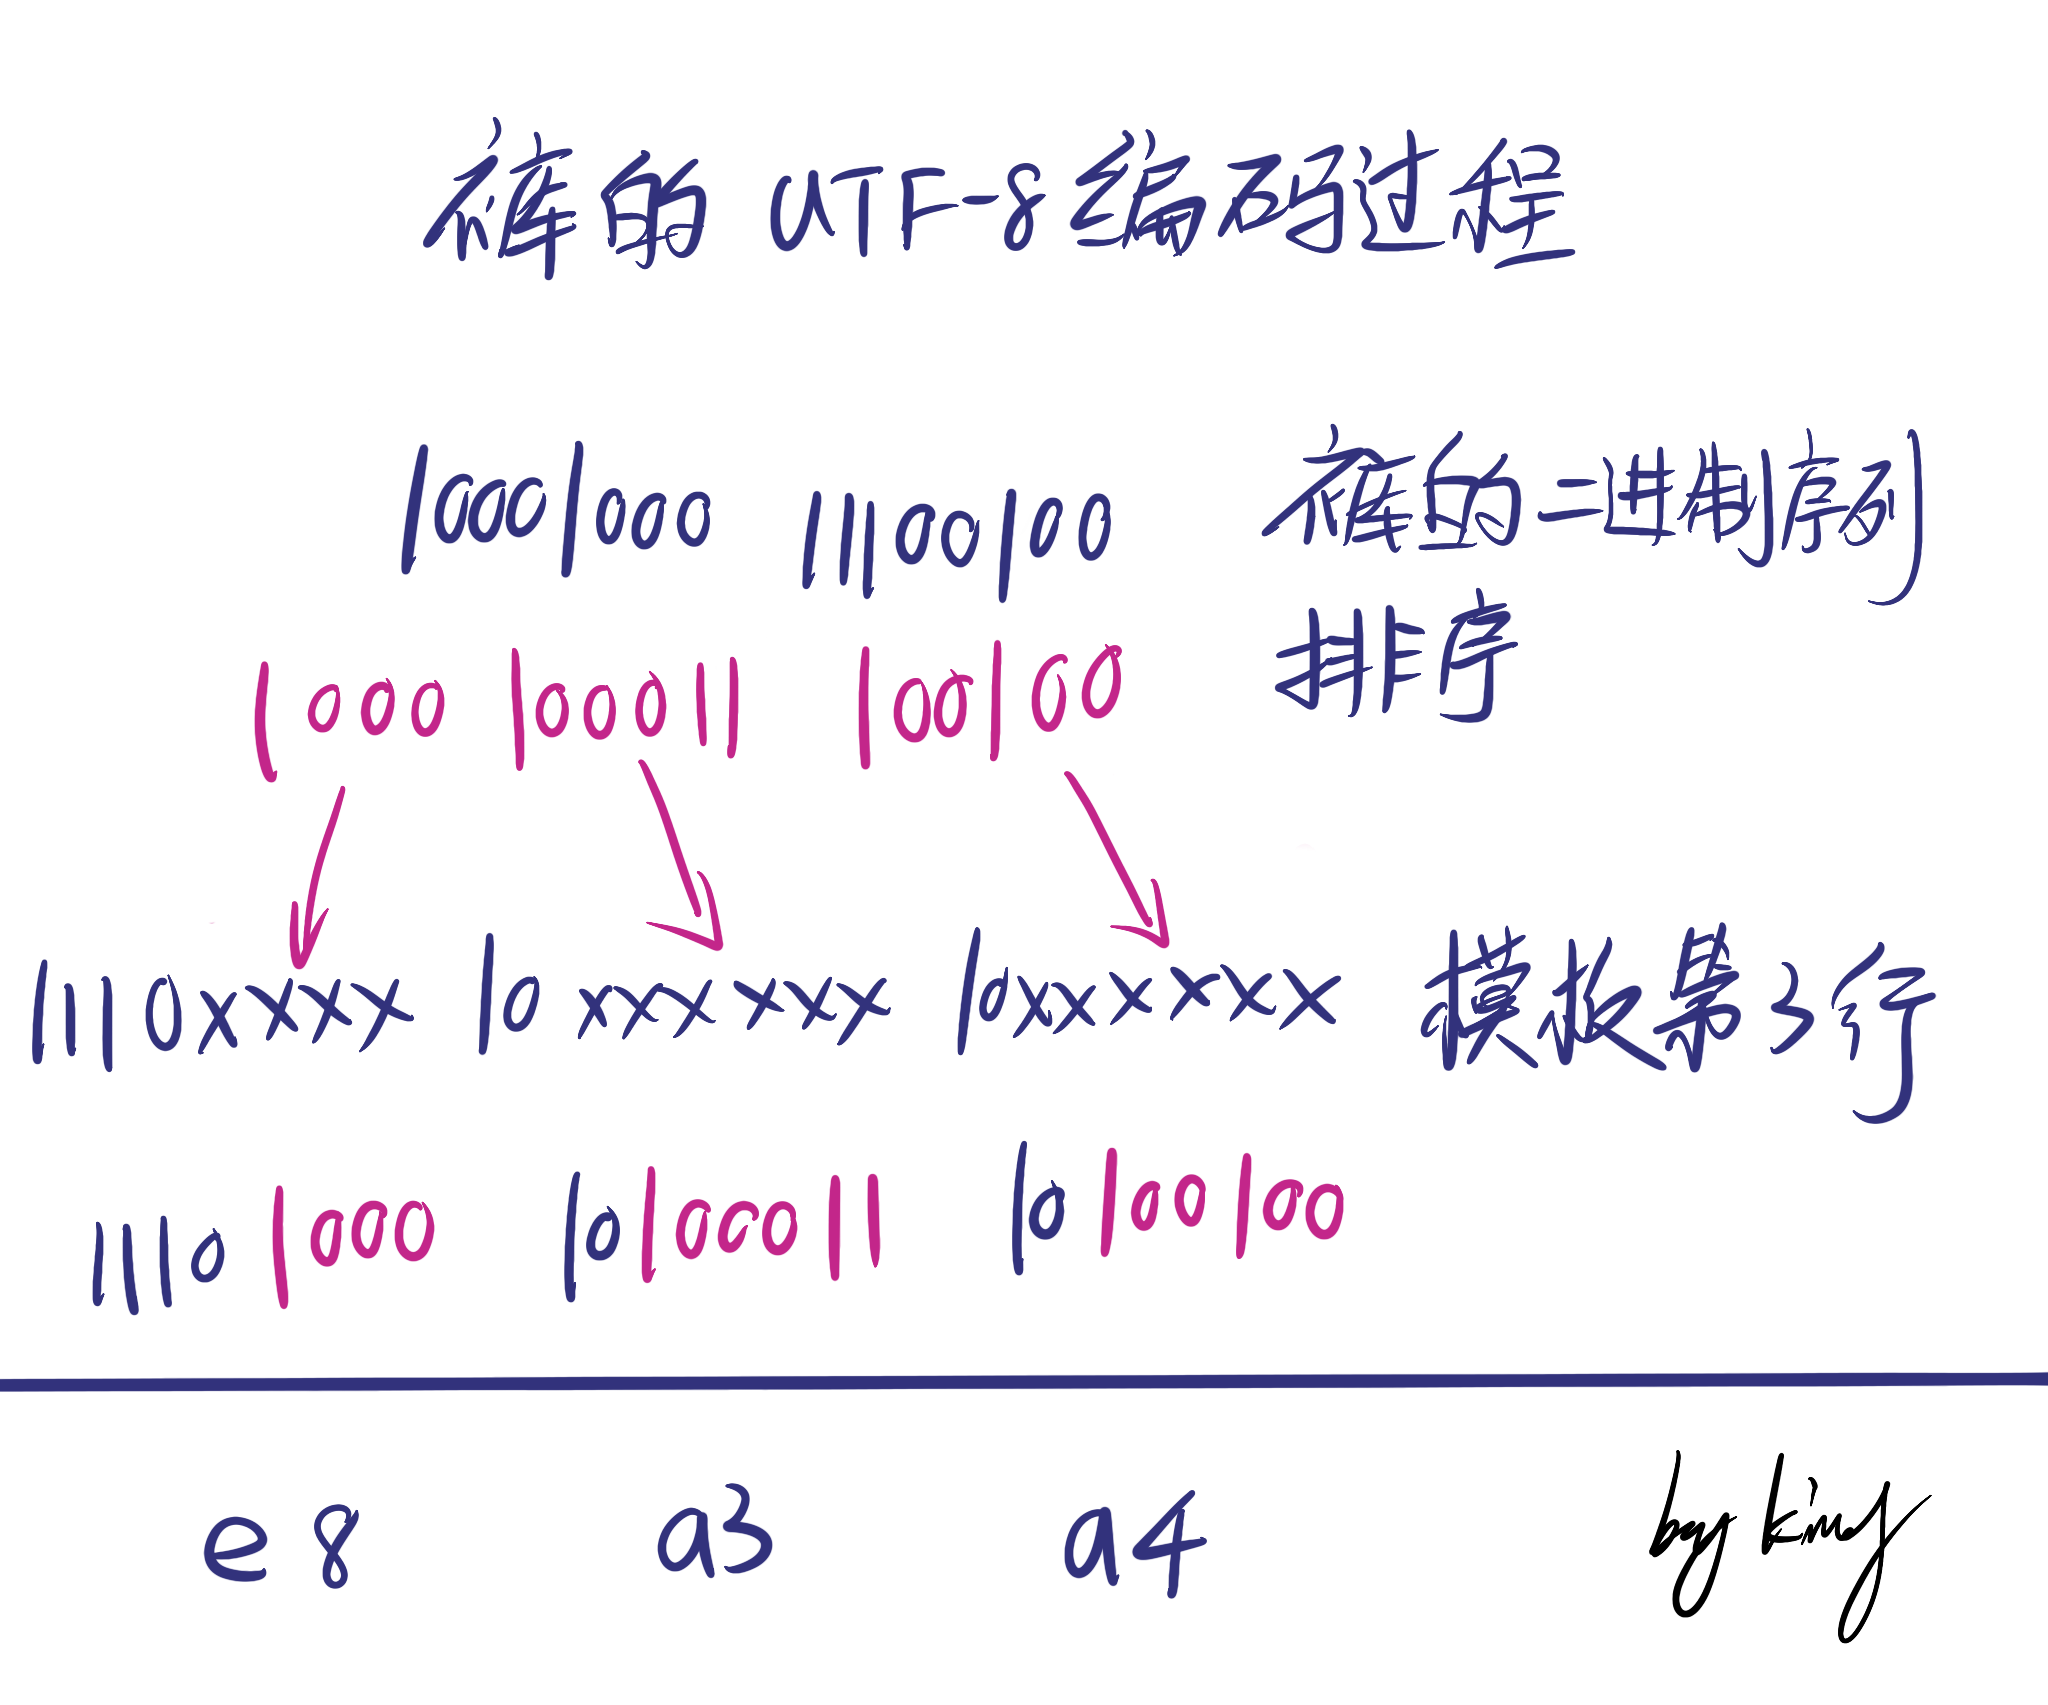 裤的 UTF-8编码过程
10001000 11100100 裤的二进制序列
1000 100011 100100 排序
1110xxxx 10xxxxxx 10xxxxxx 模板第3行
11101000 10100011 10100100
e8 a3 a4 by king